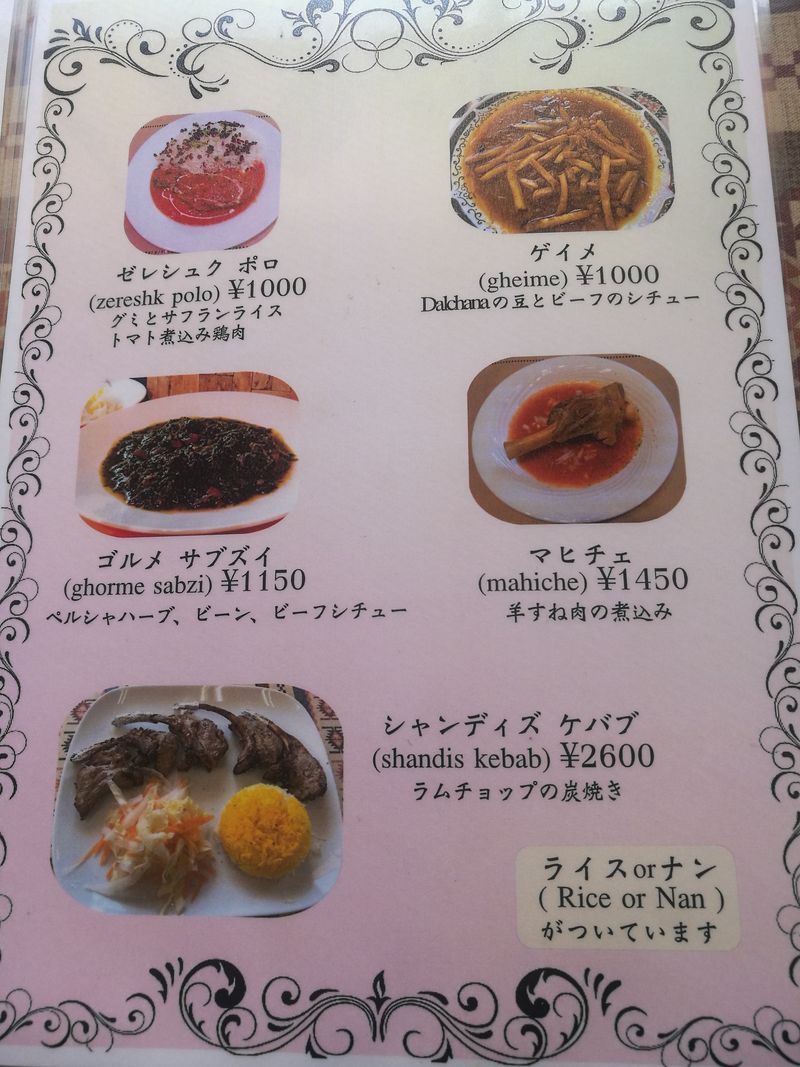 ゼレシュク ポロ
(zereshk polo) ¥1000
グミとサフランライス
トマト煮込み鶏肉
ゲイメ
(gheime) ¥1000
Dalchanaの豆とビーフのシチュー
ゴルメ サブズイ
(ghorme sabzi) ¥1150
ペルシャハーブ、ビーン、ビーフシチュー
マヒチェ
(mahiche) ¥1450
羊すね肉の煮込み
シャンディズ ケバブ
(shandis kebab) ¥2600
ラムチョップの炭焼き
ライスorナン
( Rice or Nan )
がついています